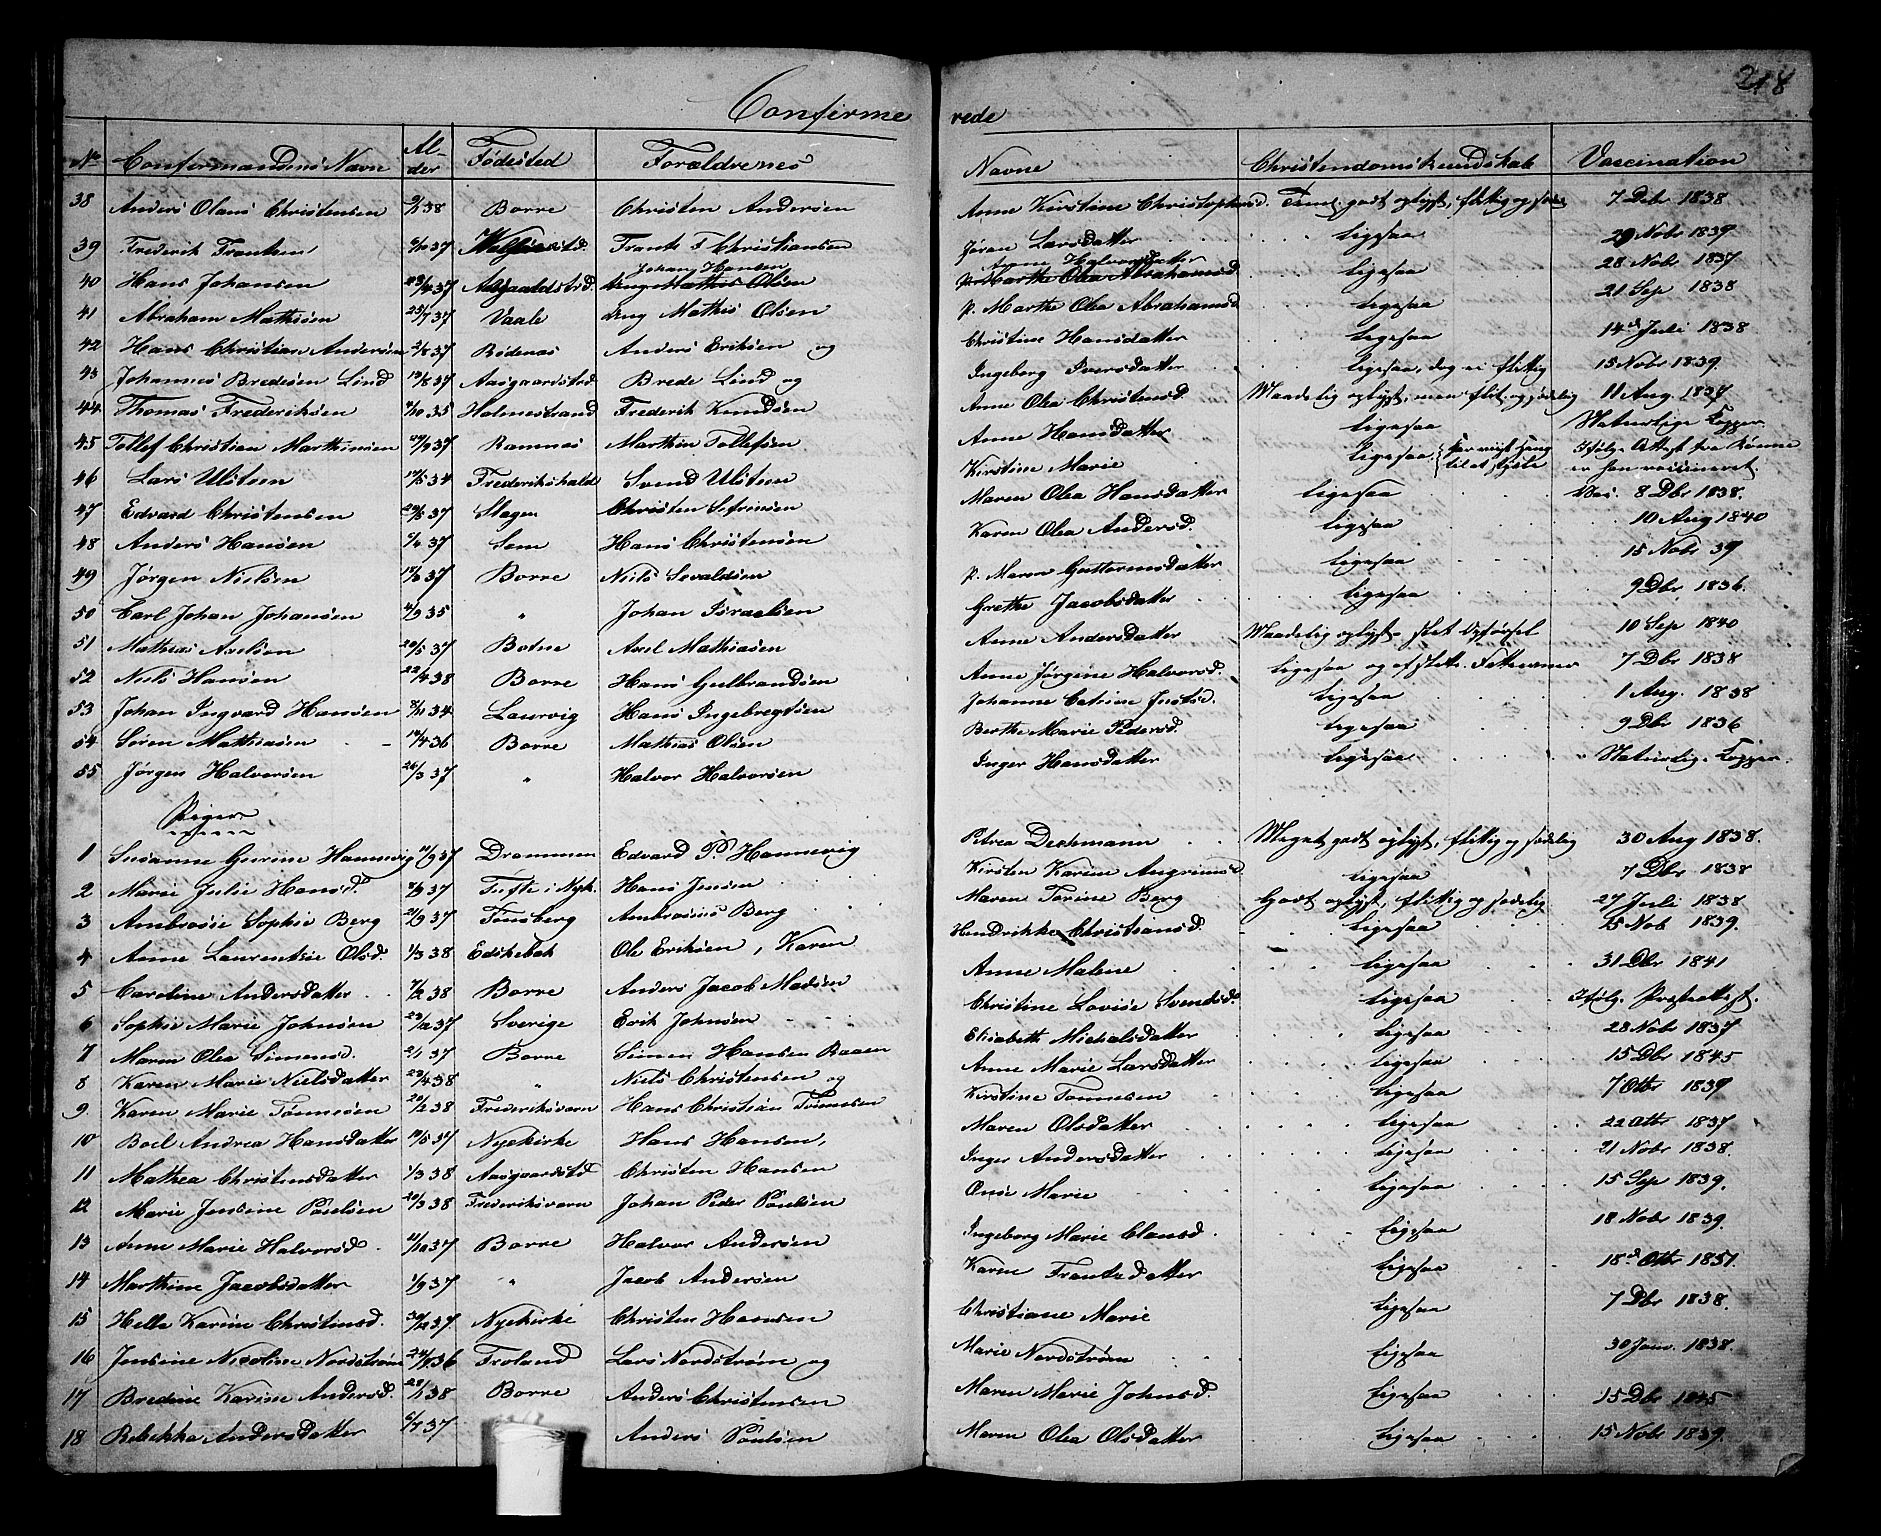 218
Confirmerede
No Confirmandens Navn Alder Fødested Forældrenes Navne Christendomskundskab Vascination
38 Anders Olaus Christensen 38 Borre Christen Andersen Anne Kirstine Christophersd. godt oplyst, flittig og 7 Dcbr 1838
39 Frederik Frantzen 37 Frants F Christiansen Jøran Larsdatter Ligesaa 29 Nobr 1839
40 Hans Johansen 37 Aasgaardstrd. Johan Hansen Anne Halvorsdatter Ligesaa 28 Nobr 1837
41 Abraham Mathisen 25/7 37 Vaale Ung Mathis Olsen p. Marthe Olea Abrahamsd. Ligesaa 21 Sep 1838
42 Hans Christian Andersen 2/8 37 Bødenæs Anders Eriksen og Christine Hansdatter Ligesaa 14d Juli 1838
43 Johannes Bredesen Lind 37 Aasgaardstrd. Brede Lind og Ingeborg Iversdatter Ligesaa, dog ei flittig 15 Nobr 1839.
44 Thomas Frederiksen 35 Holmestrand Frederik Knudsen Anne Olea Christensd. Maadelig oplyst, men flit. og sædelig 11 Aug. 1837
45 Tollef Christian Marthinsen 37 Ramnæs Marthin Tollefsen Anne Hansdatter Ligesaa Naturlige Kopper
46 Lars Ulstsen 34 Frederikshald Svend Ulstsen Kirstine Marie Ligesaa. har viist Hang til at stjæle Ifølge Attest fra Rønne er han vaccineret.
47 Edvard Christensen 37 Slagen Christen Sefrinsen Maren Olea Hansdatter Ligesaa Vac. 8 Dbr 1838.
48 Anders Hansen 37 Sem Hans Christensen Karen Olea Andersd. Ligesaa 10 Aug 1840
49 Jørgen Nielsen 37 Borre Niels Sevaldsen p. Maren Guttormsdatter Ligesaa 15 Nobr 39
50 Carl Johan Johansen 35 " Johan Israelsen Grethe Jacobsdatter Ligesaa 9 Dbr 1836.
51 Mathias Axelsen 29/5 37 Botne Axel Mathiasen Anne Andersdatter Maadelig oplyst - slet Opførsel 10 Sep 1840
52 Niels Hansen 22/4 38 Borre Hans Gulbrandsen Anne Jørgine Halvorsd. Ligesaa og af slette 7 Dbr 1838
53 Johan Ingvard Hansen 34 Laurvig Hans Ingebregtsen Johanne Catrine Justsd. Ligesaa 1 Aug. 1838
54 Søren Mathiasen 14/4 36 Borre Mathias Olsen Berthe Marie Pedersd. Ligesaa 9 Dbr 1836
55 Jørgen Halvorsen 26/3 37 " Halvor Halvorsen Inger Hansdatter Ligesaa " Naturlig. Kopper.
Piger
1 Susanne Gurine Hannevig 37 Drammen Edvard P. Hannevig Petrea Dechmann Meget godt oplyst, flittig og sædelig 30 Aug 1838.
2 Marie Julie Hansd. 37 Tufte i Nyk. Hans Jensen Kirsten Karine Angrimsd. Ligesaa 7 Dbr 1838
3 Ambrosie Sophie Berg 21/9 37 Tønsberg Ambrosius Berg Maren Torine Berg Godt oplyst, flittig og sædelig 27 Juli 1838
4 Anne Laurentsie Olsd. 1/3 38 Edskebak Ole Eriksen, Karen Hendrikke Christiansd. Ligesaa 15 Nob 1839.
5 Caroline Andersdatter 38 Borre Anders Jacob Madsen Anne Malene Ligesaa 31 Dbr 1841
6 Sophie Marie Johnsen 37 Sverige Erik Johnsen Christine Lovise Svendsd. Ligesaa Ifølg. Præsteattest.
7 Maren Olea Simensd. 37 Borre Simen Hansen Raaen Elisabeth Michalsdatter Ligesaa 28 Nobr 1837
8 Karen Marie Nielsdatter 29/4 38 " Niels Christensen og Anne Marie Larsdatter Ligesaa 15 Dbr 1845
9. Karen Marie Tønnesen 20/2 38 Frederiksværn Hans Christian Tønnesen Kirstine Tønnesen Ligesaa 7 Otbr 1839
10 Boel Andrea Hansdatter 37 Nyekirke Hans Hansen, Maren Olsdatter Ligesaa 22 Otbr 1837
11 Mathea Christensdatter 1/3 38 Aasgaardstd Christen Hansen Inger Andersdatter Ligesaa 21 Nobr 1838.
12 Marie Jensine Poulsen 20/3 38 Frederiksværn Johan Peder Poulsen Marie Ligesaa 15 Sep 1839.
13 Anne Marie Halvorsd. 37 Borre Halvor Andersen Ingeborg Marie Clausd. Ligesaa 18 Nobr 1839.
14 Marthine Jacobsdatter 1/9 37 " Jacob Andersen Karen Frantzdatter Ligesaa 18d Otbr 1851.
15 Helle Karine Christensd. 30/12 37. Nyekirke Christen Hansen Christiane Marie Ligesaa 7 Dbr 1838.
16 Jensine Nicoline Nordstrøm 36 Froland Lars Nordstrøm og Marie Nordstrøm Ligesaa 30 Jan. 1838.
17 Bredine Karine Andersd. 28/1 38 Borre Anders Christensen Maren Marie Johnsd. Ligesaa 15 Dbr 1845
18 Rebekka Andersdatter 37 Anders Poulsen Maren Olea Olsdatter Ligesaa 15 Nobr 1839.